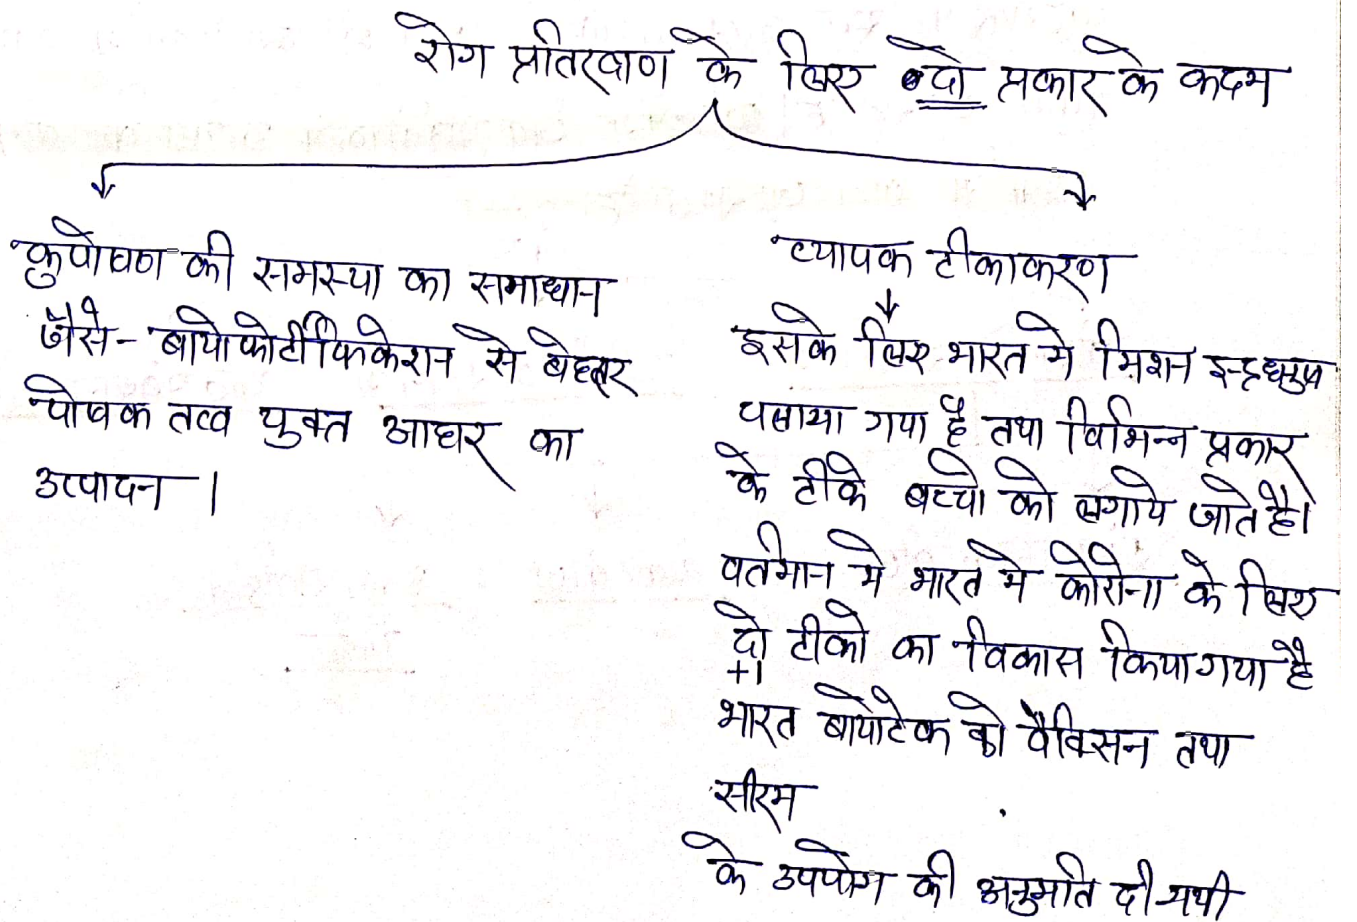 रोग प्रतिरक्षण के लिए दो प्रकार के कदम
कुपोषण की समस्या का समाधान
जैसे- बायोफोर्टीफिकेशन से बेहतर
पोषक तत्व युक्त आहार का
उत्पादन ।
व्यापक टीकाकरण
इसके लिए भारत मे मिशन इन्द्रधनुष
चलाया गया है तथा विभिन्न प्रकार
के टीके बच्चो को लगाये जाते है।
वर्तमान मे भारत मे कोरोना के लिए
दो टीको का विकास किया गया है
+1
भारत बायोटेक को वैक्सिन तथा
सीरम
के उपयोग की अनुमति दी गयी